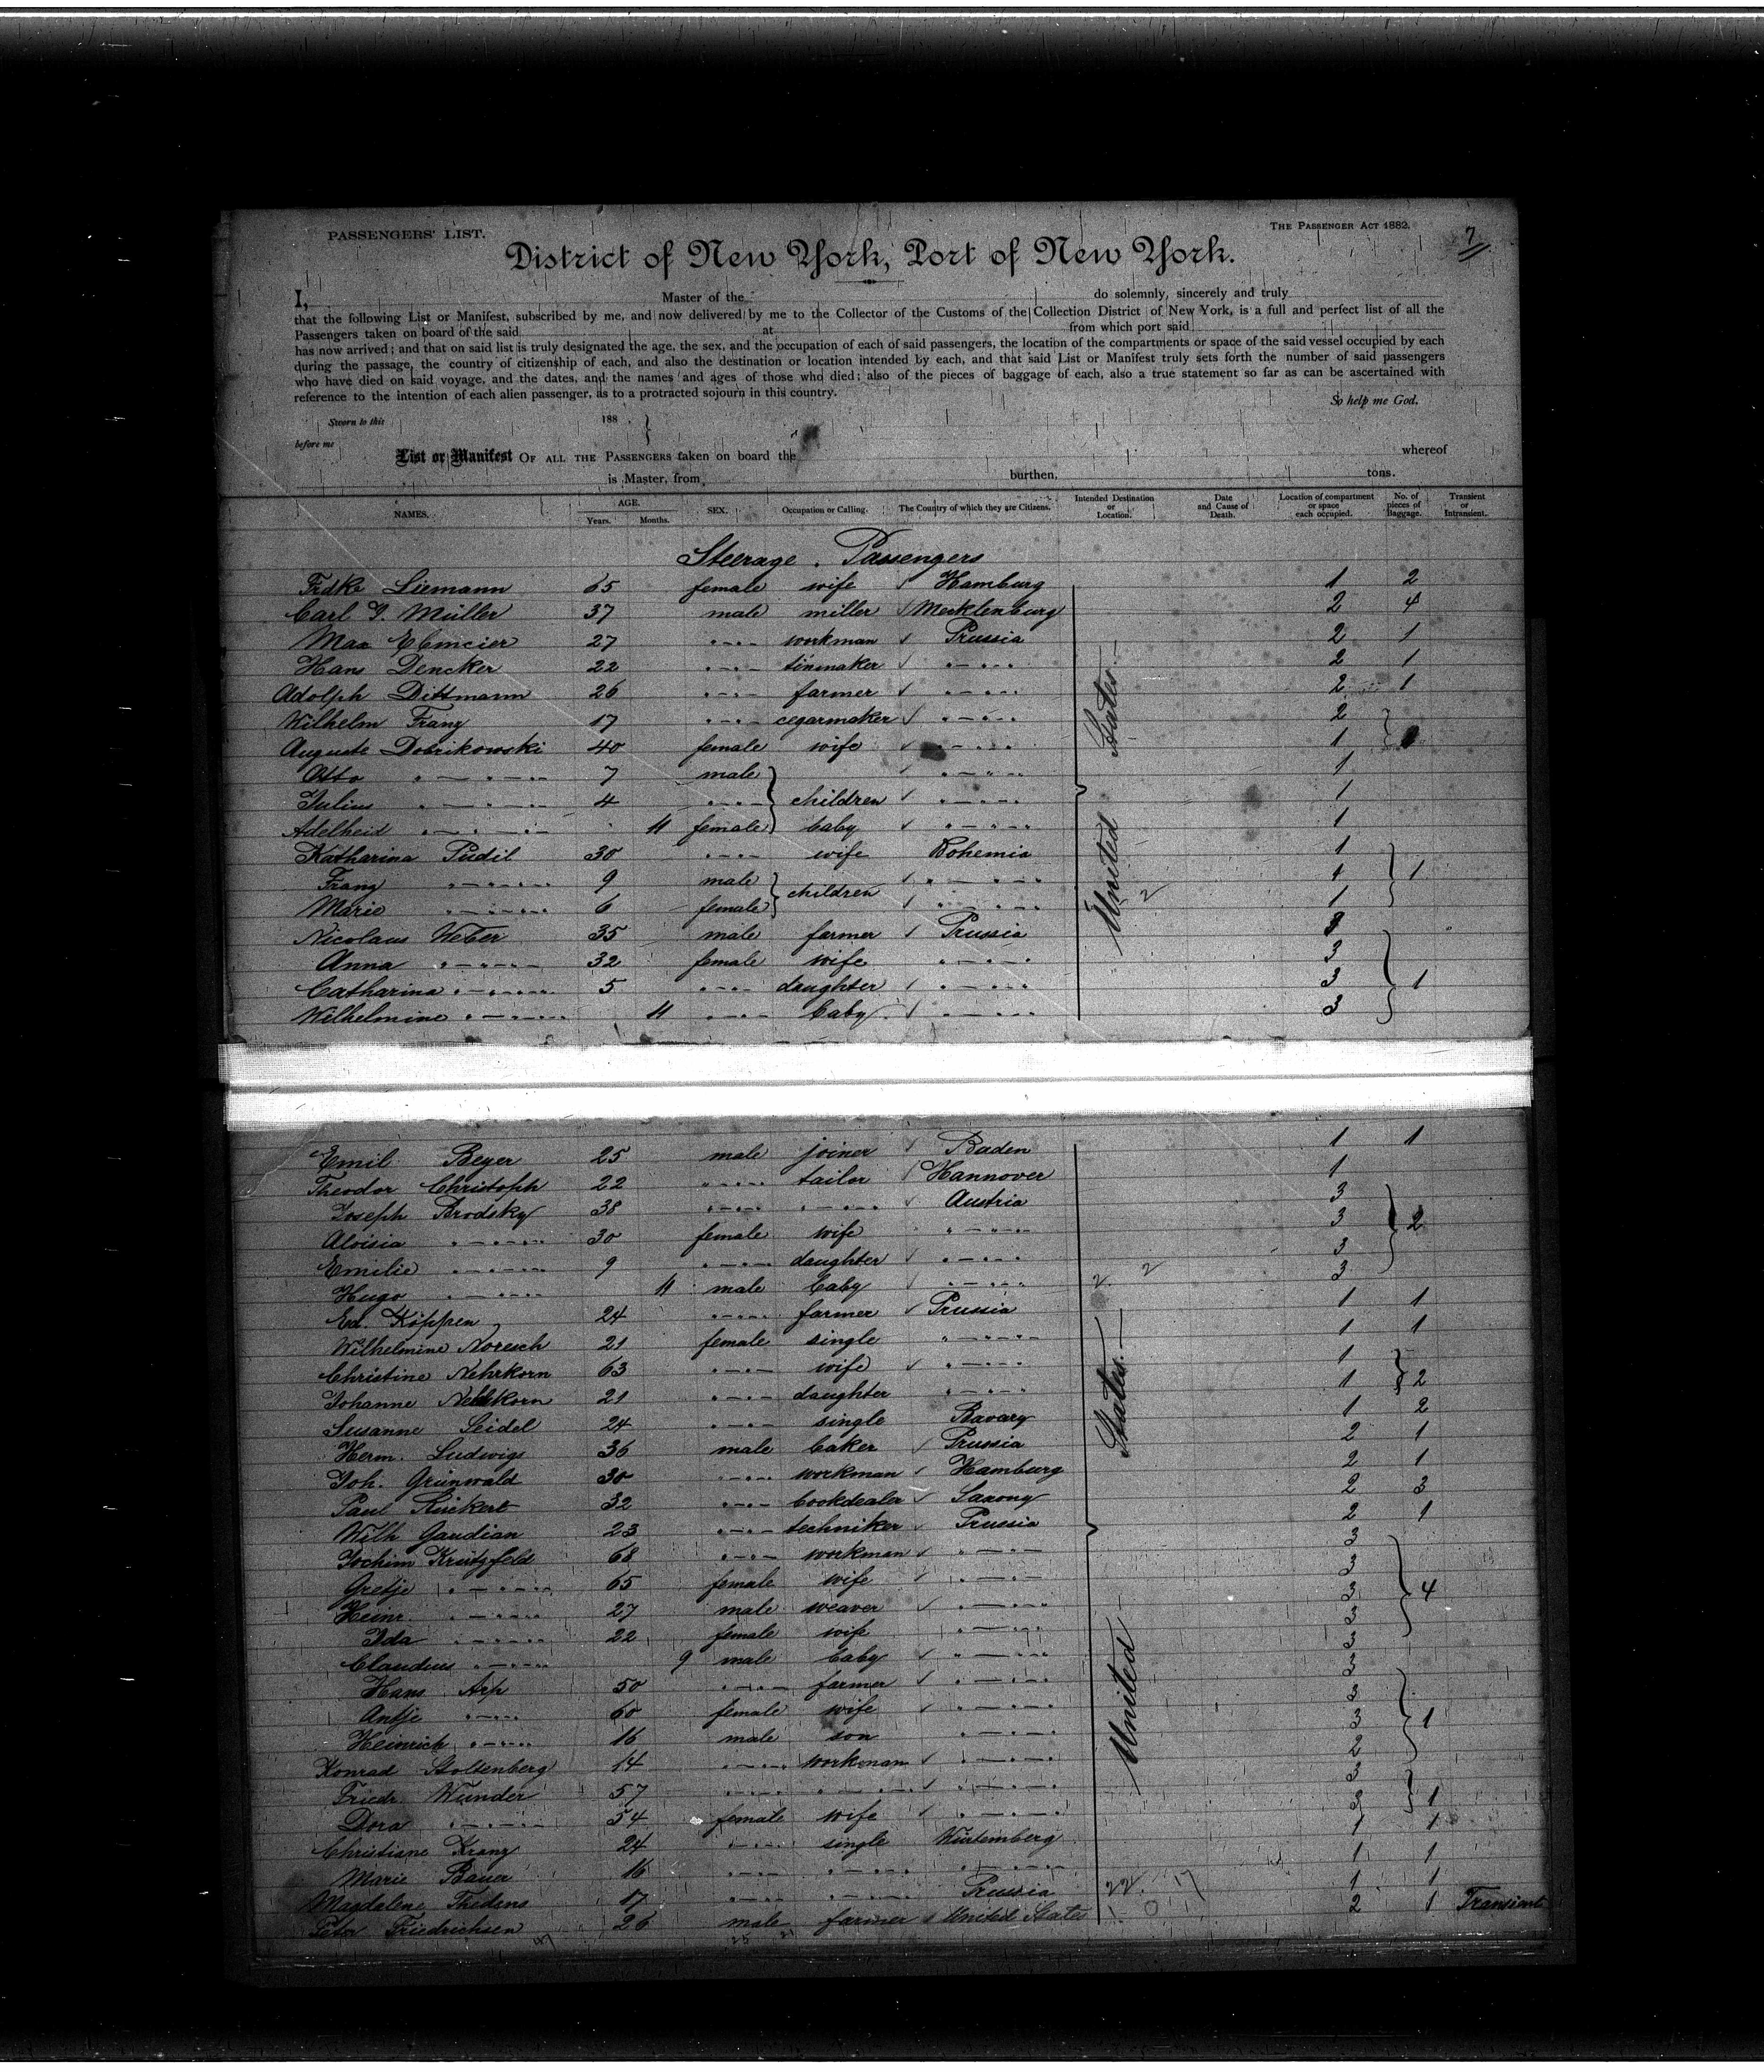 PASSENGERS' LIST.
THE PASSENGER ACT 1882.
7
District of New York, Port of New York.
I, Master of the do solemnly, sincerely and truly
that the following List or Manifest, subscribed by me, and now delivered by me to the Collector of the Customs of the Collection District of New York, is a full and perfect list of all the
Passengers taken on board of the said at from which port said
has now arrived; and that on said list is truly designated the age, the sex, and the occupation of each of said passengers, the location of the compartments or space of the said vessel occupied by each
during the passage, the country of citizenship of each, and also the destination or location intended by each, and that said List or Manifest truly sets forth the number of said passengers
who have died on said voyage, and the dates, and the names and ages of those who died; also of the pieces of baggage of each, also a true statement so far as can be ascertained with
reference to the intention of each alien passenger, as to a protracted sojourn in this country.
So help me God.
Sworn to this 188
before me
List or Manifest OF ALL THE PASSENGERS taken on board the whereof
is Master, from burthen, tons.
NAMES. AGE. Years. Months. SEX. Occupation or Calling. The Country of which they are Citizens. Intended Destination or Location. Date and Cause of Death. Location of compartment or space each occupied. No. of pieces of Baggage. Transient or Intransient.
Steerage Passengers
Frdke Liemann 65 female wife Hamburg 1 2
Carl J. Müller 37 male miller Mecklenburg 2 4
Max 27 " workman Prussia 2 1
Hans Dencker 22 " tinmaker " 2 1
Adolph Dittmann 26 " farmer " 2 1
Wilhelm Franz 17 " cegarmaker " 2
Auguste Dobrikowski 40 female wife " 1
Otto " 7 male " 1
Julius " 4 " children " 1
Adelheid " 11 female baby " 1
Katharina Pudil 30 " wife Bohemia 1
Franz " 9 male children " 1 1
Marie " 6 female " 1
Nicolaus Weber 35 male farmer Prussia 3
Anna " 32 female wife " 3
Catharina " 5 " daughter " 3 1
Wilhelmine " 11 " baby " 3
United States
Emil Beyer 25 male joiner Baden 1 1
Theodor Christoph 22 " tailor Hannover 1
Joseph Brodsky 38 " " Austria 3
Aloisia " 30 female wife " 3 2
Emilie " 9 " daughter " 3
Hugo " 11 male baby " 3
Ed. Köppen 24 " farmer Prussia 1 1
Wilhelmine 21 female single " 1 1
Christine Nehrkorn 63 " wife " 1
Johanne Nehrkorn 21 " daughter " 1 2
Susanne Seidel 24 " single Bavary 1 2
Herm. Ludwigs 36 male baker Prussia 2 1
Joh. Grünwald 30 " workman Hamburg 2 1
Paul Rückert 32 " bookdealer Saxony 2 3
Wilh Gaudian 23 " techniker Prussia 2 1
Jochim Krützfeld 68 " workman " 3
Gretje " 65 female wife " 3
Heinr. " 27 male weaver " 3 4
Ida " 22 female wife " 3
Claudius " 9 male baby " 3
Hans Arp 50 " farmer " 3
Antje " 60 female wife " 3
Heinrich " 16 male son " 3 1
Konrad Stoltenberg 14 " workman " 2
Friedr Wunder 57 " " " 3
Dora " 54 female wife " 3 1
Christiane Kranz 24 " single Würtemberg 1 1
Marie Bauer 16 " " " 1 1
Magdalene Thedens 17 " " Prussia 1 1
Peter Friedrichsen 26 male farmer United States 2 1 Transient
United States